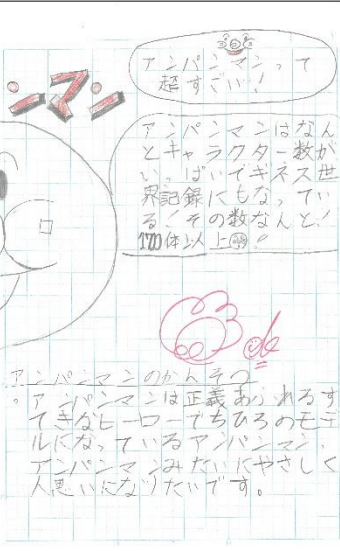 ンマン
アンパンマンって
超すごい!
アンパンマンはなん
とキャラクター数が
いっぱいでギネス世
界記録にもなってい
る!その数なんと!
1700体以上!!
アンパンマンのかんそう
。アンパンマンは正義あふれるす
てきなヒーローでちひろのモデ
ルになっているアンパンマン、
アンパンマンみたいにやさしく
人思いになりたいです。